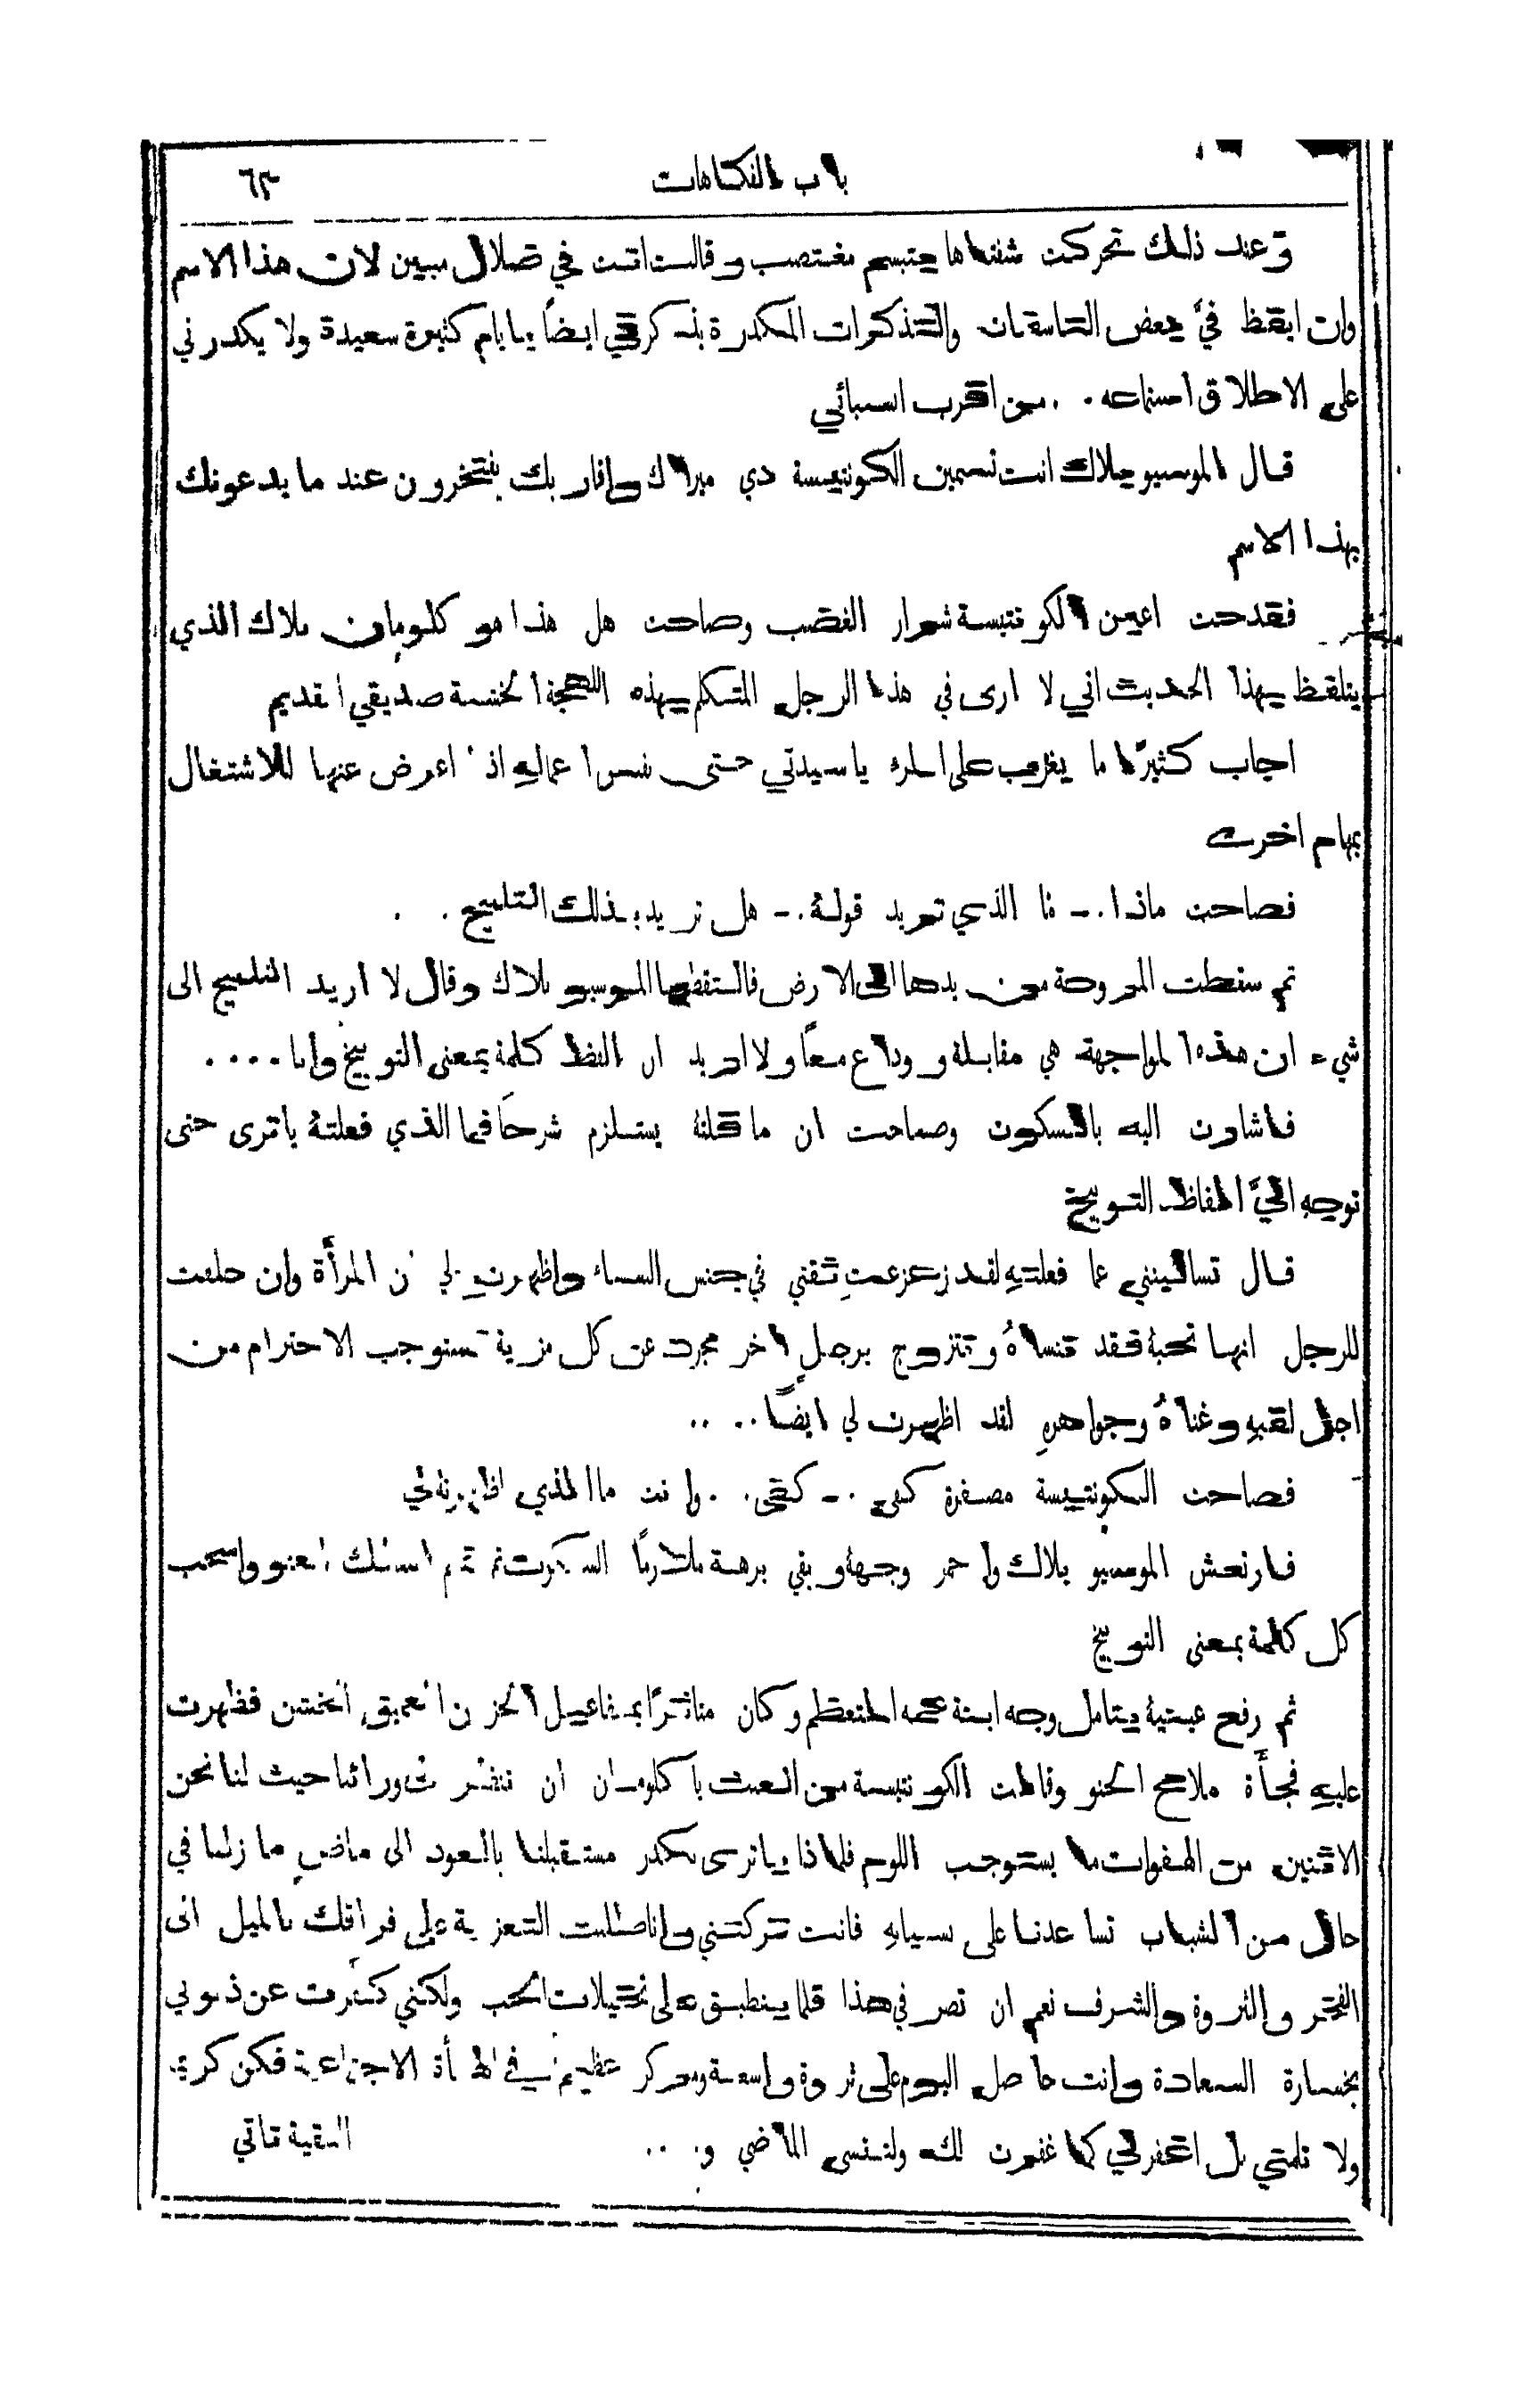 باب الفكاهات ٦٣
وعند ذلك تحركت شفتاها بتبسم مغتصب وقالت انت في ضلال مبين لان هذا الاسم
وان ايقظ فيَّ بعض التاسفات والتذكرات المكدرة يذكرني ايضاً بايام كثيرة سعيدة ولا يكدرني
على الاطلاق استماعه . . من اقرب انسبائي
قال الموسيو بلاك انت تسمين الكونتيسة دي ميرلاك واقاربك يفتخرون عند ما يدعونك
بهذا الاسم
فقدحت اعين الكونتيسة شرار الغضب وصاحت هل هذا هو كلومان بلاك الذي
يتلفظ بهذا الحديث اني لا ارى في هذا الرجل المتكلم بهذه اللهجة الخشنة صديقي القديم
اجاب كثيرًا ما يغرب على المرء يا سيدتي حتى نفس اعماله اذا اعرض عنها للاشتغال
بمهام اخرى
فصاحت ماذا .– ما الذي تريد قولهُ .– هل تريد بذلك التلميح . .
ثم سقطت المروحة من يدها الى الارض فالتقطها الموسيو بلاك وقال لا اريد التلميح الى
شيء ان هذه المواجهة هي مقابلة ووداع معاً ولا اريد ان الفظ كلمة بمعنى التوبيخ وانا . . . .
فاشارت اليه بالسكوت وصاحت ان ما قلتهُ يستلزم شرحاً فما الذي فعلتهُ يا ترى حتى
توجه اليَّ الفاظ التوبيخ
قال تسالينني عما فعلتيهِ لقد زعزعتِ ثقتي في جنس النساء واظهرتِ لي ان المرأة وان حلفت
للرجل انها تحبهُ فقد تنساهُ وتتزوج برجلٍ اخر مجرد عن كل مزية تستوجب الاحترام من
اجل لقبهِ وغناهُ وجواهرهِ لقد اظهرت لي ايضاً . . . .
فصاحت الكونتيسة مصفرة كفى .– كفى . . وانت ما الذي اظهرتهُ لي
فارتعش الموسيو بلاك واحمر وجههُ وبقي برهة ملازمًا السكوت ثم تمتم اسئلك العفو واسحب
كل كلمة بمعنى التوبيخ
ثم رفع عينيهُ يتامل وجه ابنة عمه المتعظم وكان متاثرًا بمفاعيل الحزن العميق الخشن فظهرت
عليهِ فجأة ملامح الحنو وقالت الكونتيسة من العبث يا كلومان ان نفتش في ورائنا حيث لنا نحن
الاثنين من الهفوات ما يستوجب اللوم فلماذا يا ترى نكدر مستقبلنا بالعود الى ماضٍ ما زلنا في
حال من الشباب تساعدنا على نسيانهِ فانت تركتني وانا طلبت التعزية على فراقك بالميل الى
الفخر والثروة والشرف نعم ان تصرفي هذا قلما ينطبق على تخيلات الحب ولكنني كفرت عن ذنوبي
بخسارة السعادة وانت حاصل اليوم على ثروة واسعة ومركز عظيم في الهيأة الاجتماعية فكن كريمًا
ولا تلمني بل اغفر لي كما غفرت لك ولننسى الماضي و . . .
البقية تاتي